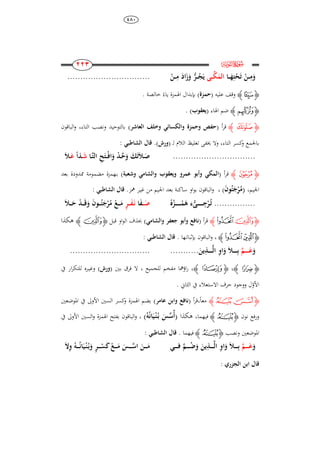 ٤٨٠
٢٢٣
وَمِنْ تَحْتِهَا الْمَكِّي يَجُرُّ وَزَادَ مِنْ ...............................
وقف عليه (حمزة) بإبدال الهمزة ياء خالصة .
ضم الهاء (يعقوب) .
﴿ صَلَوٰتَكَ ﴾ قرأ (حفص وحمزة والكسائي وخلف العاشر) بالتوحيد ونصب التاء، والباقون
بالجمع وكسر التاء، ولا يخفى تغليظ اللام لـ (ورش). قال الشاطبي :
............................... صَلَاتَكَ وَحِّدْ وَافْتَحِ التَّا شَذاً عَلاَ
﴿ مُرْجَوْنَ ﴾ قرأ (المكي وأبو عمرو ويعقوب والشامي وشعبة) بهمزة مضمومة ممدودة بعد
الجيم، (مُرْجَئُونَ) ، والباقون بواو ساكنة بعد الجيم من غير همز. قال الشاطبي :
قرأ (نافع وأبو جعفر والشامي) بحذف الواو قبل ﴿ ٱلَّذِينَ ﴾ هكذا
﴿ ٱلَّذِينَ ٱتَّخَذُواْ ﴾ ، والباقون بإثباتها . قال الشاطبي :
وَعَمَّ بِلاَ وَاوِ الَّذِينَ ........... ...............................
راؤهما مفخم للجميع ، لا فرق بين (ورش) وغيره للتكرار في
الأوّل ووجود حرف الاستعلاء في الثاني .
معاً،قرأ (نافع وابن عامر) بضم الهمزة وكسر السين الأولى في الموضعين
ورفع نون فيهما، هكذا (أُسِّسَ بُنْيَانُهُ) ، والباقون بفتح الهمزة والسين الأولى في
الموضعين ونصب فيهما . قال الشاطبي :
وَعَمَّ بِلاَ وَاوِ الَّذِينَ وَضُمَّ فِي مَنَ اسَّسَ مَعْ كَسْرٍ وَبُنْيَانُهُ وِلاَ
قال ابن الجزري :